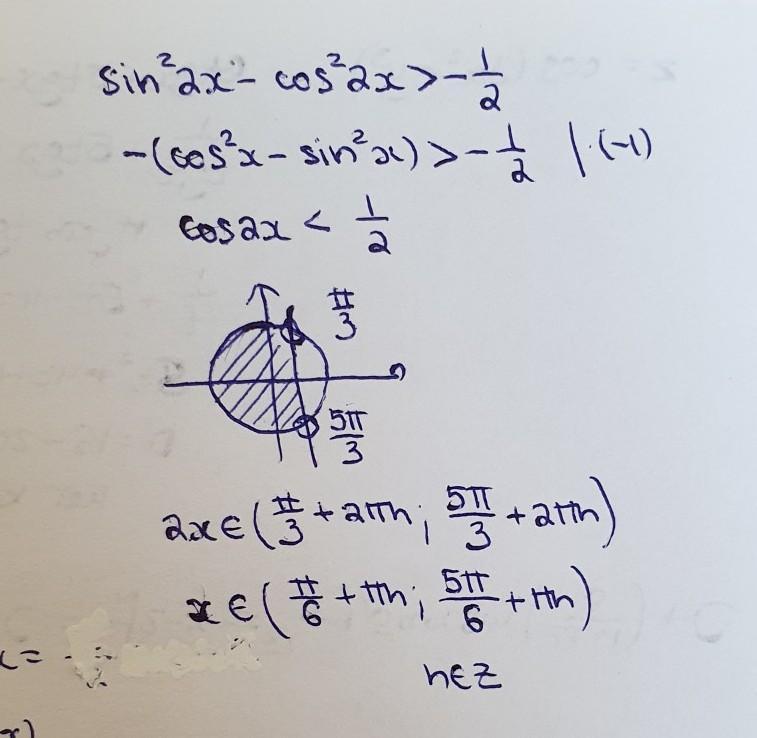 sin²2x - cos²2x > -1/2
-(cos²x - sin²x) > -1/2 |·(-1)
cos2x < 1/2
π/3
5π/3
2x ∈ (π/3 + 2πn; 5π/3 + 2πn)
x ∈ (π/6 + πn; 5π/6 + πn)
x = -
n ∈ Z
x)